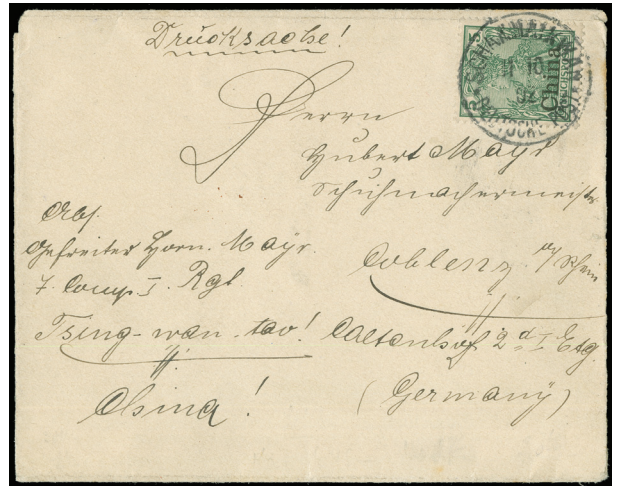 Drucksache!
5
REICHSPOST
China
SCHANHAIKWAN
DEUTSCHE POST
Herrn
Hubert Mayr
Schuhmachermeister
Coblenz a/Rhein
2 Etg.
(Germany)
Abs.
Gefreiter Horn. Mayr.
7. Comp I. Rgt
Tsing-wan-tao!
China!